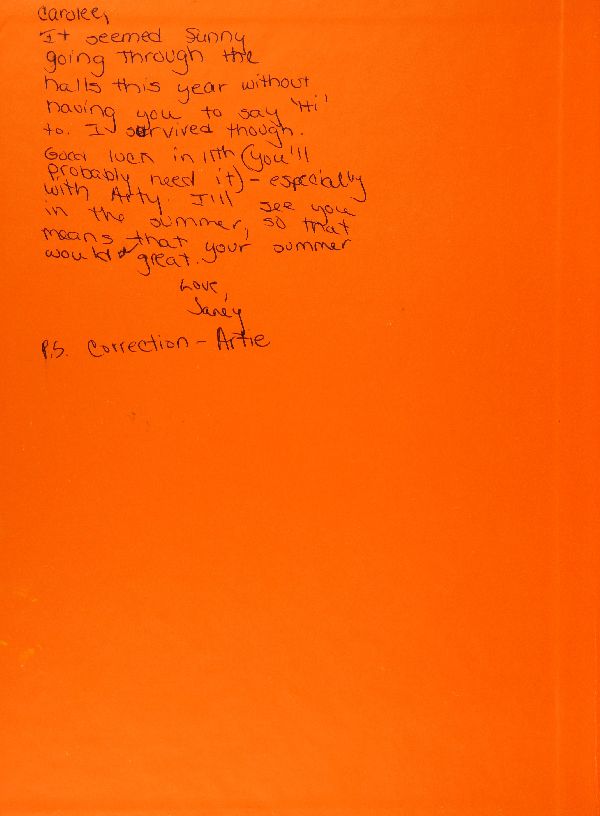 Carolee,
It seemed Sunny
going through the
halls this year without
having you to say 'Hi'
to. I survived though.
Good luck in 11th (you'll
probably need it) - especially
with Arty. I'll see you
in the summer, so that
means that your summer
would great.
Love,
Janey
P.S. Correction - Artie